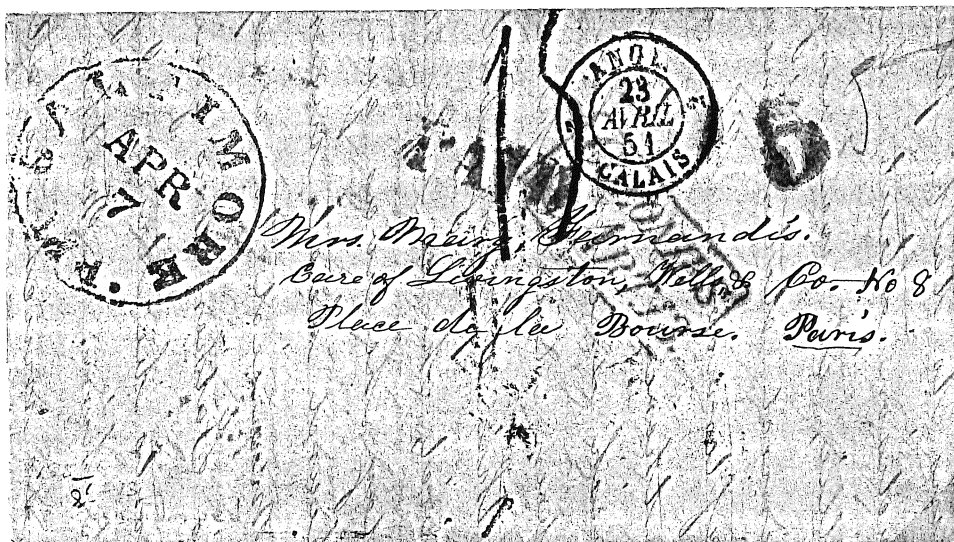 BALTIMORE Md.
APR
7
15
ANGL.
23
AVRIL
51
CALAIS
Mrs. Mary Fernandis.
Care of Livingston, Wells & Co. No 8
Place de la Bourse. Paris.